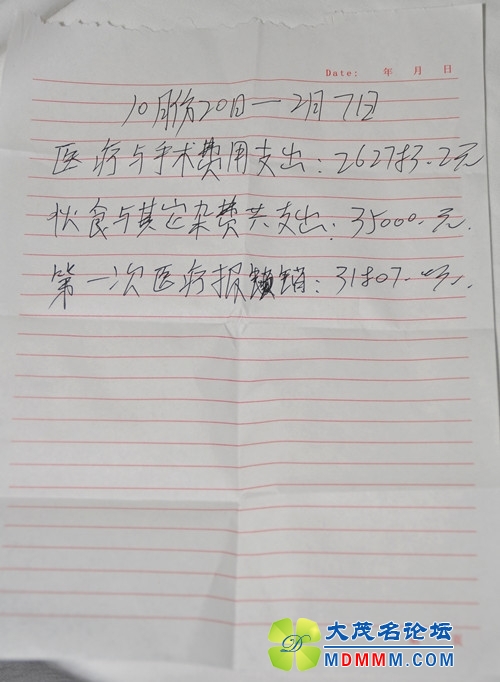 Date: 年 月 日
10月份20日—2月7日
医疗与手术费用支出:262783.2元
伙食与其它杂费共支出:35000.元.
第一次医疗报销:31807.元.
大茂名论坛
MDMMM.COM